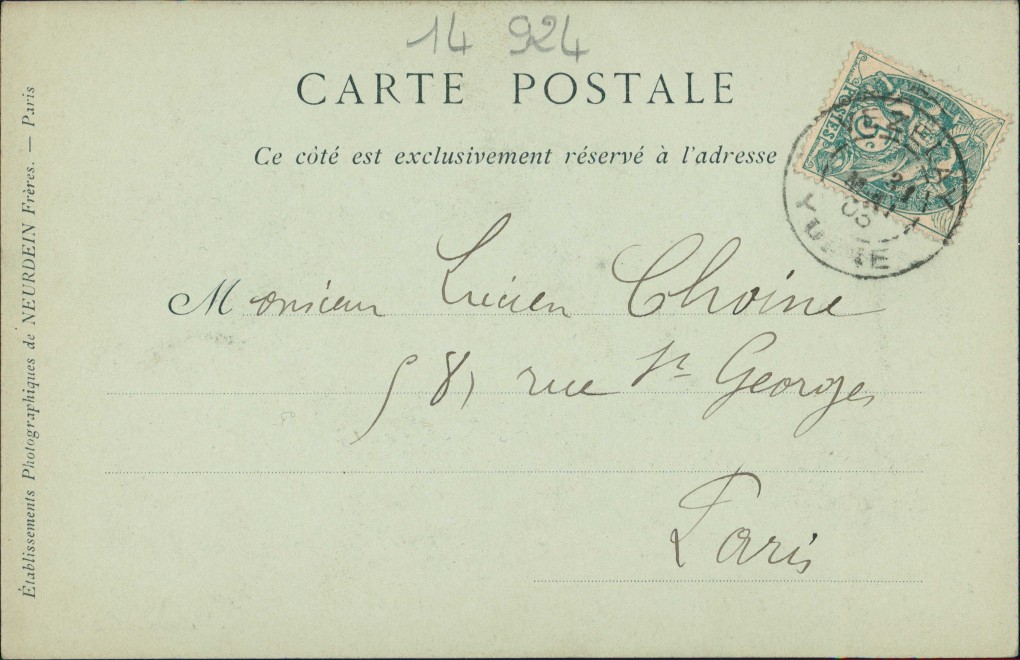 14 924
CARTE POSTALE
Ce côté est exclusivement réservé à l'adresse
POSTES
5
03
Monsieur Lucien Choine
58, rue St Georges
Paris
Établissements Photographiques de NEURDEIN Frères. — Paris